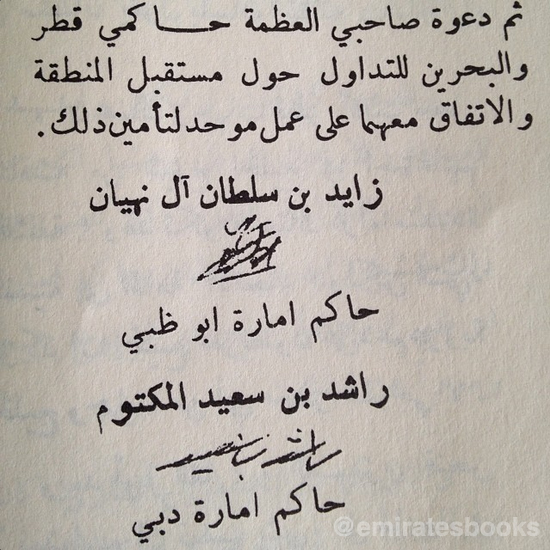 ثم دعوة صاحبي العظمة حاكمي قطر
والبحرين للتداول حول مستقبل المنطقة
والاتفاق معهما على عمل موحد لتأمين ذلك .
زايد بن سلطان آل نهيان
حاكم امارة ابو ظبي
راشد بن سعيد المكتوم
راشد بن سعيد
حاكم امارة دبي
@emiratesbooks